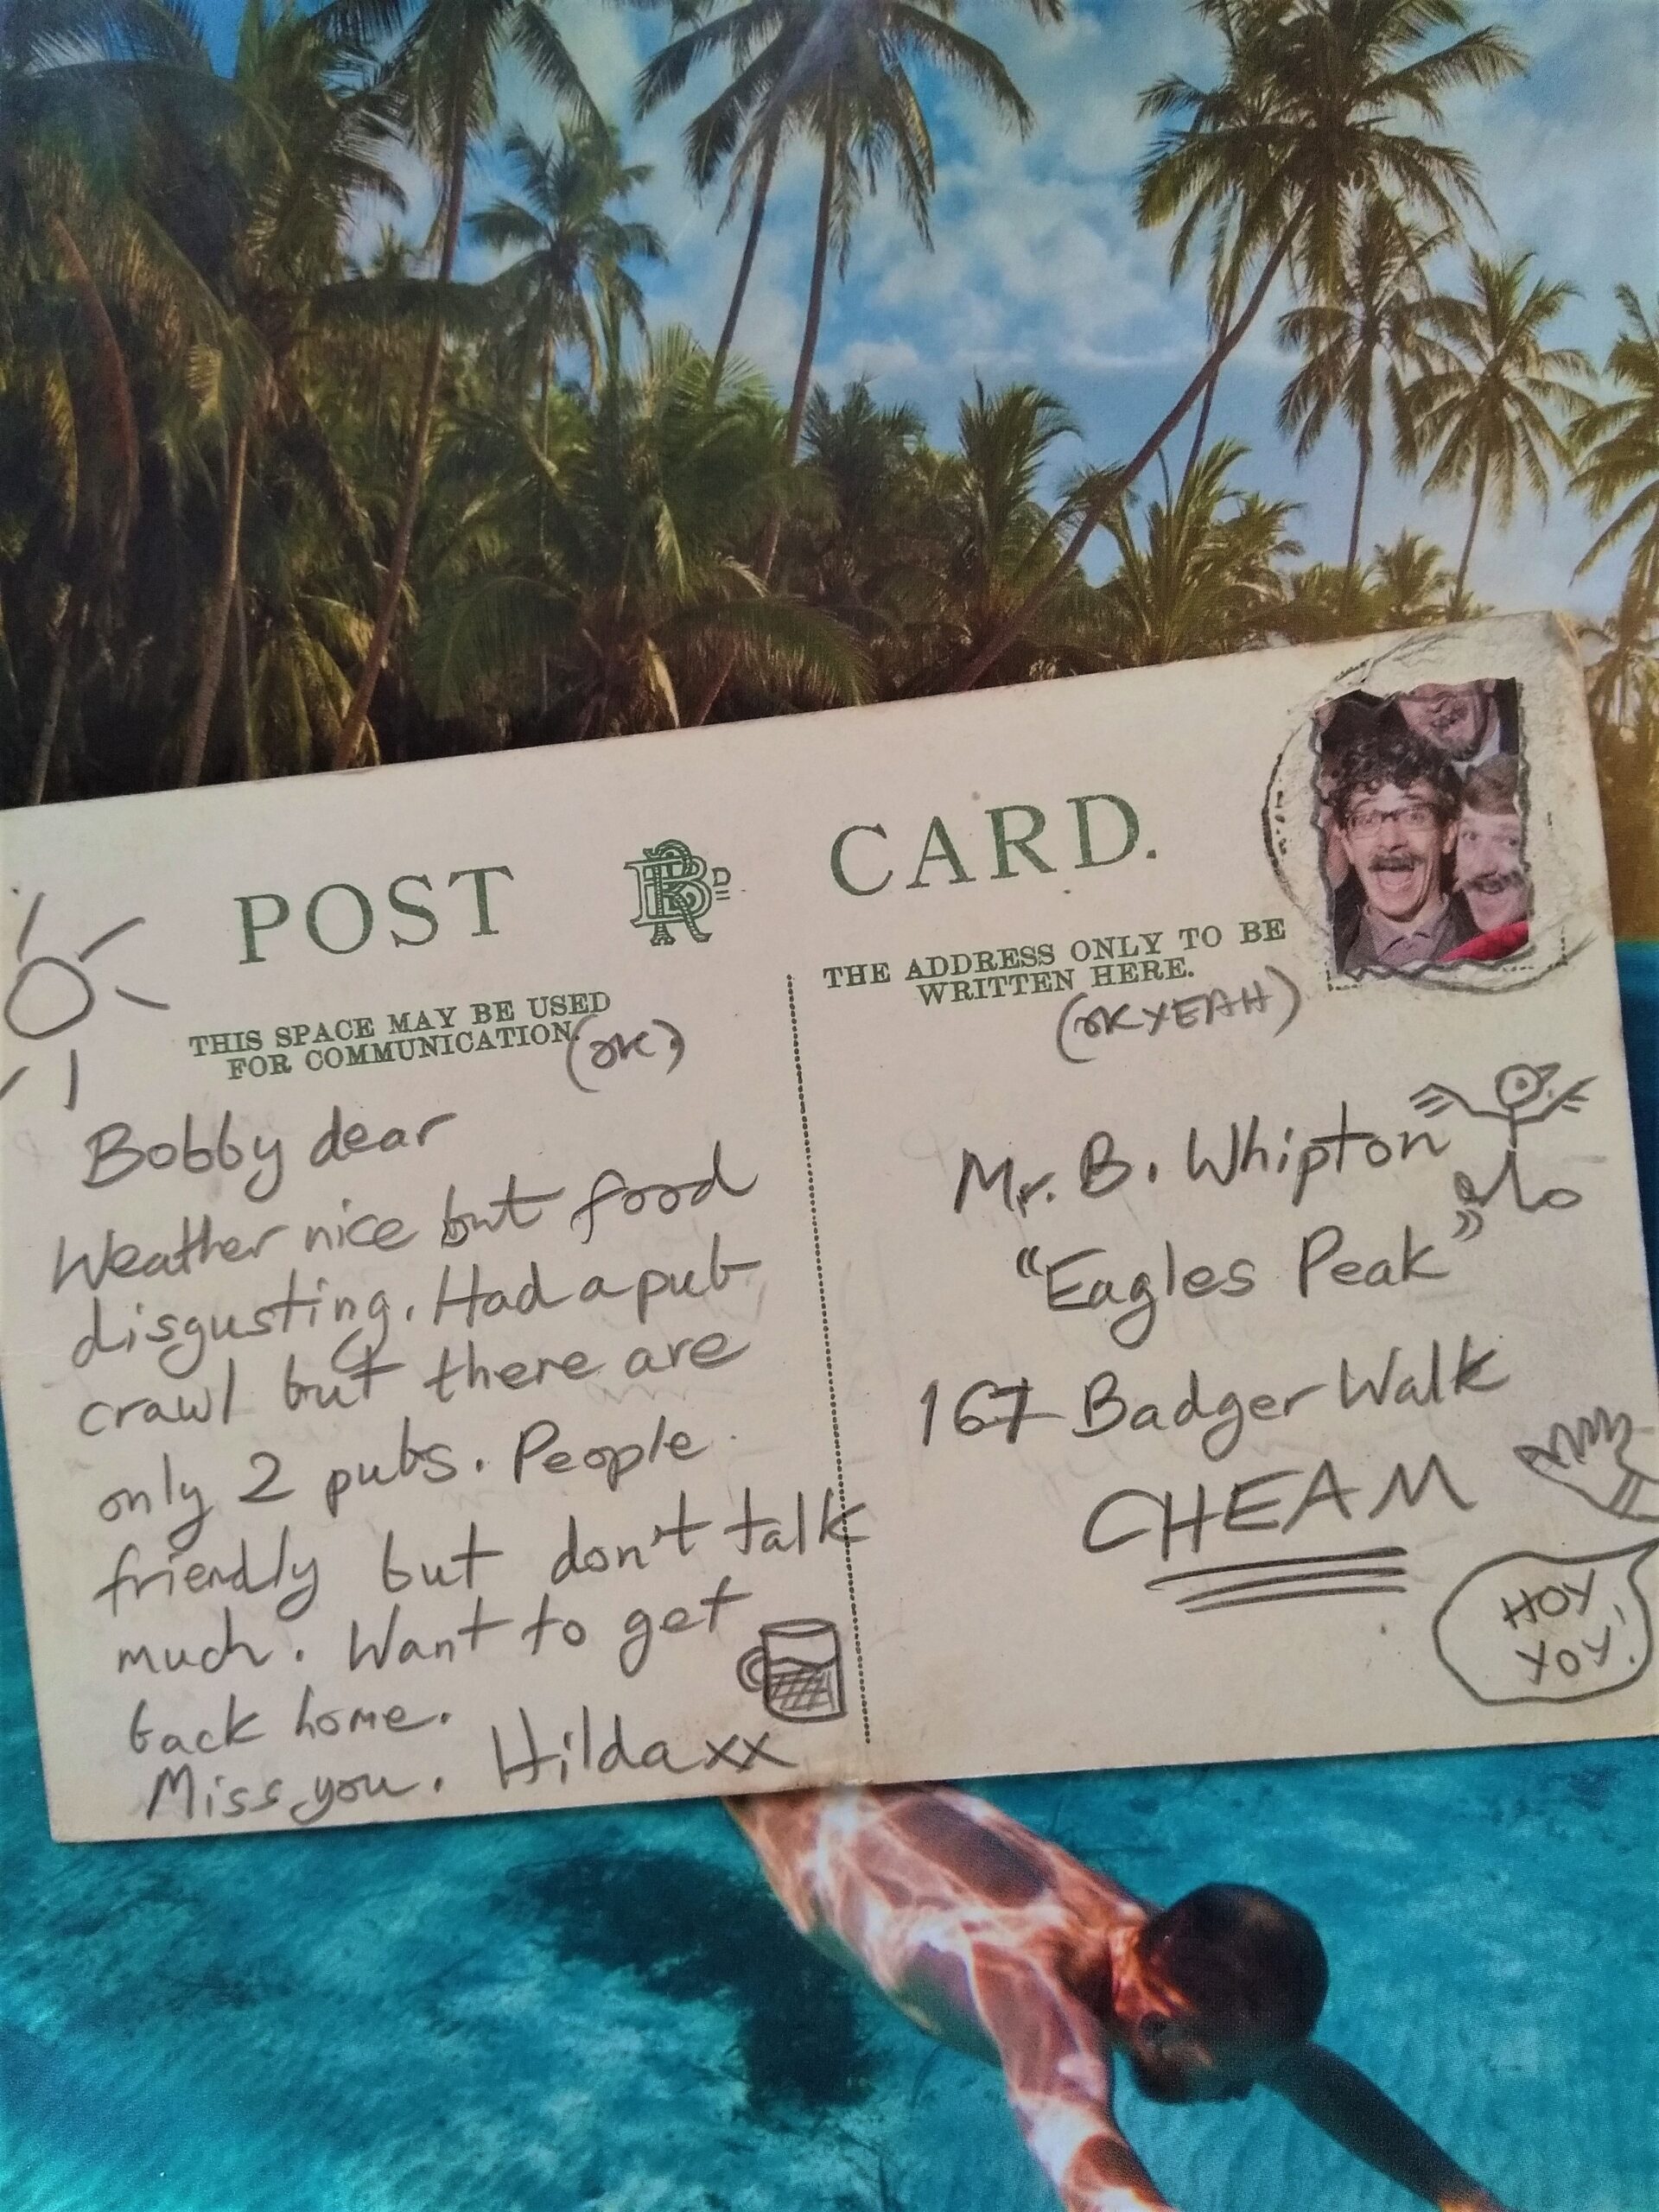 POST RBD CARD.
THIS SPACE MAY BE USED
FOR COMMUNICATION.
(OK)
THE ADDRESS ONLY TO BE
WRITTEN HERE.
(OK YEAH)
Bobby dear
Weather nice but food
disgusting. Had a pub
crawl but there are
only 2 pubs. People
friendly but don't talk
much. Want to get
back home.
Miss you. Hilda xx
Mr. B. Whipton
"Eagles Peak"
167 Badger Walk
CHEAM
HOY
YOY!